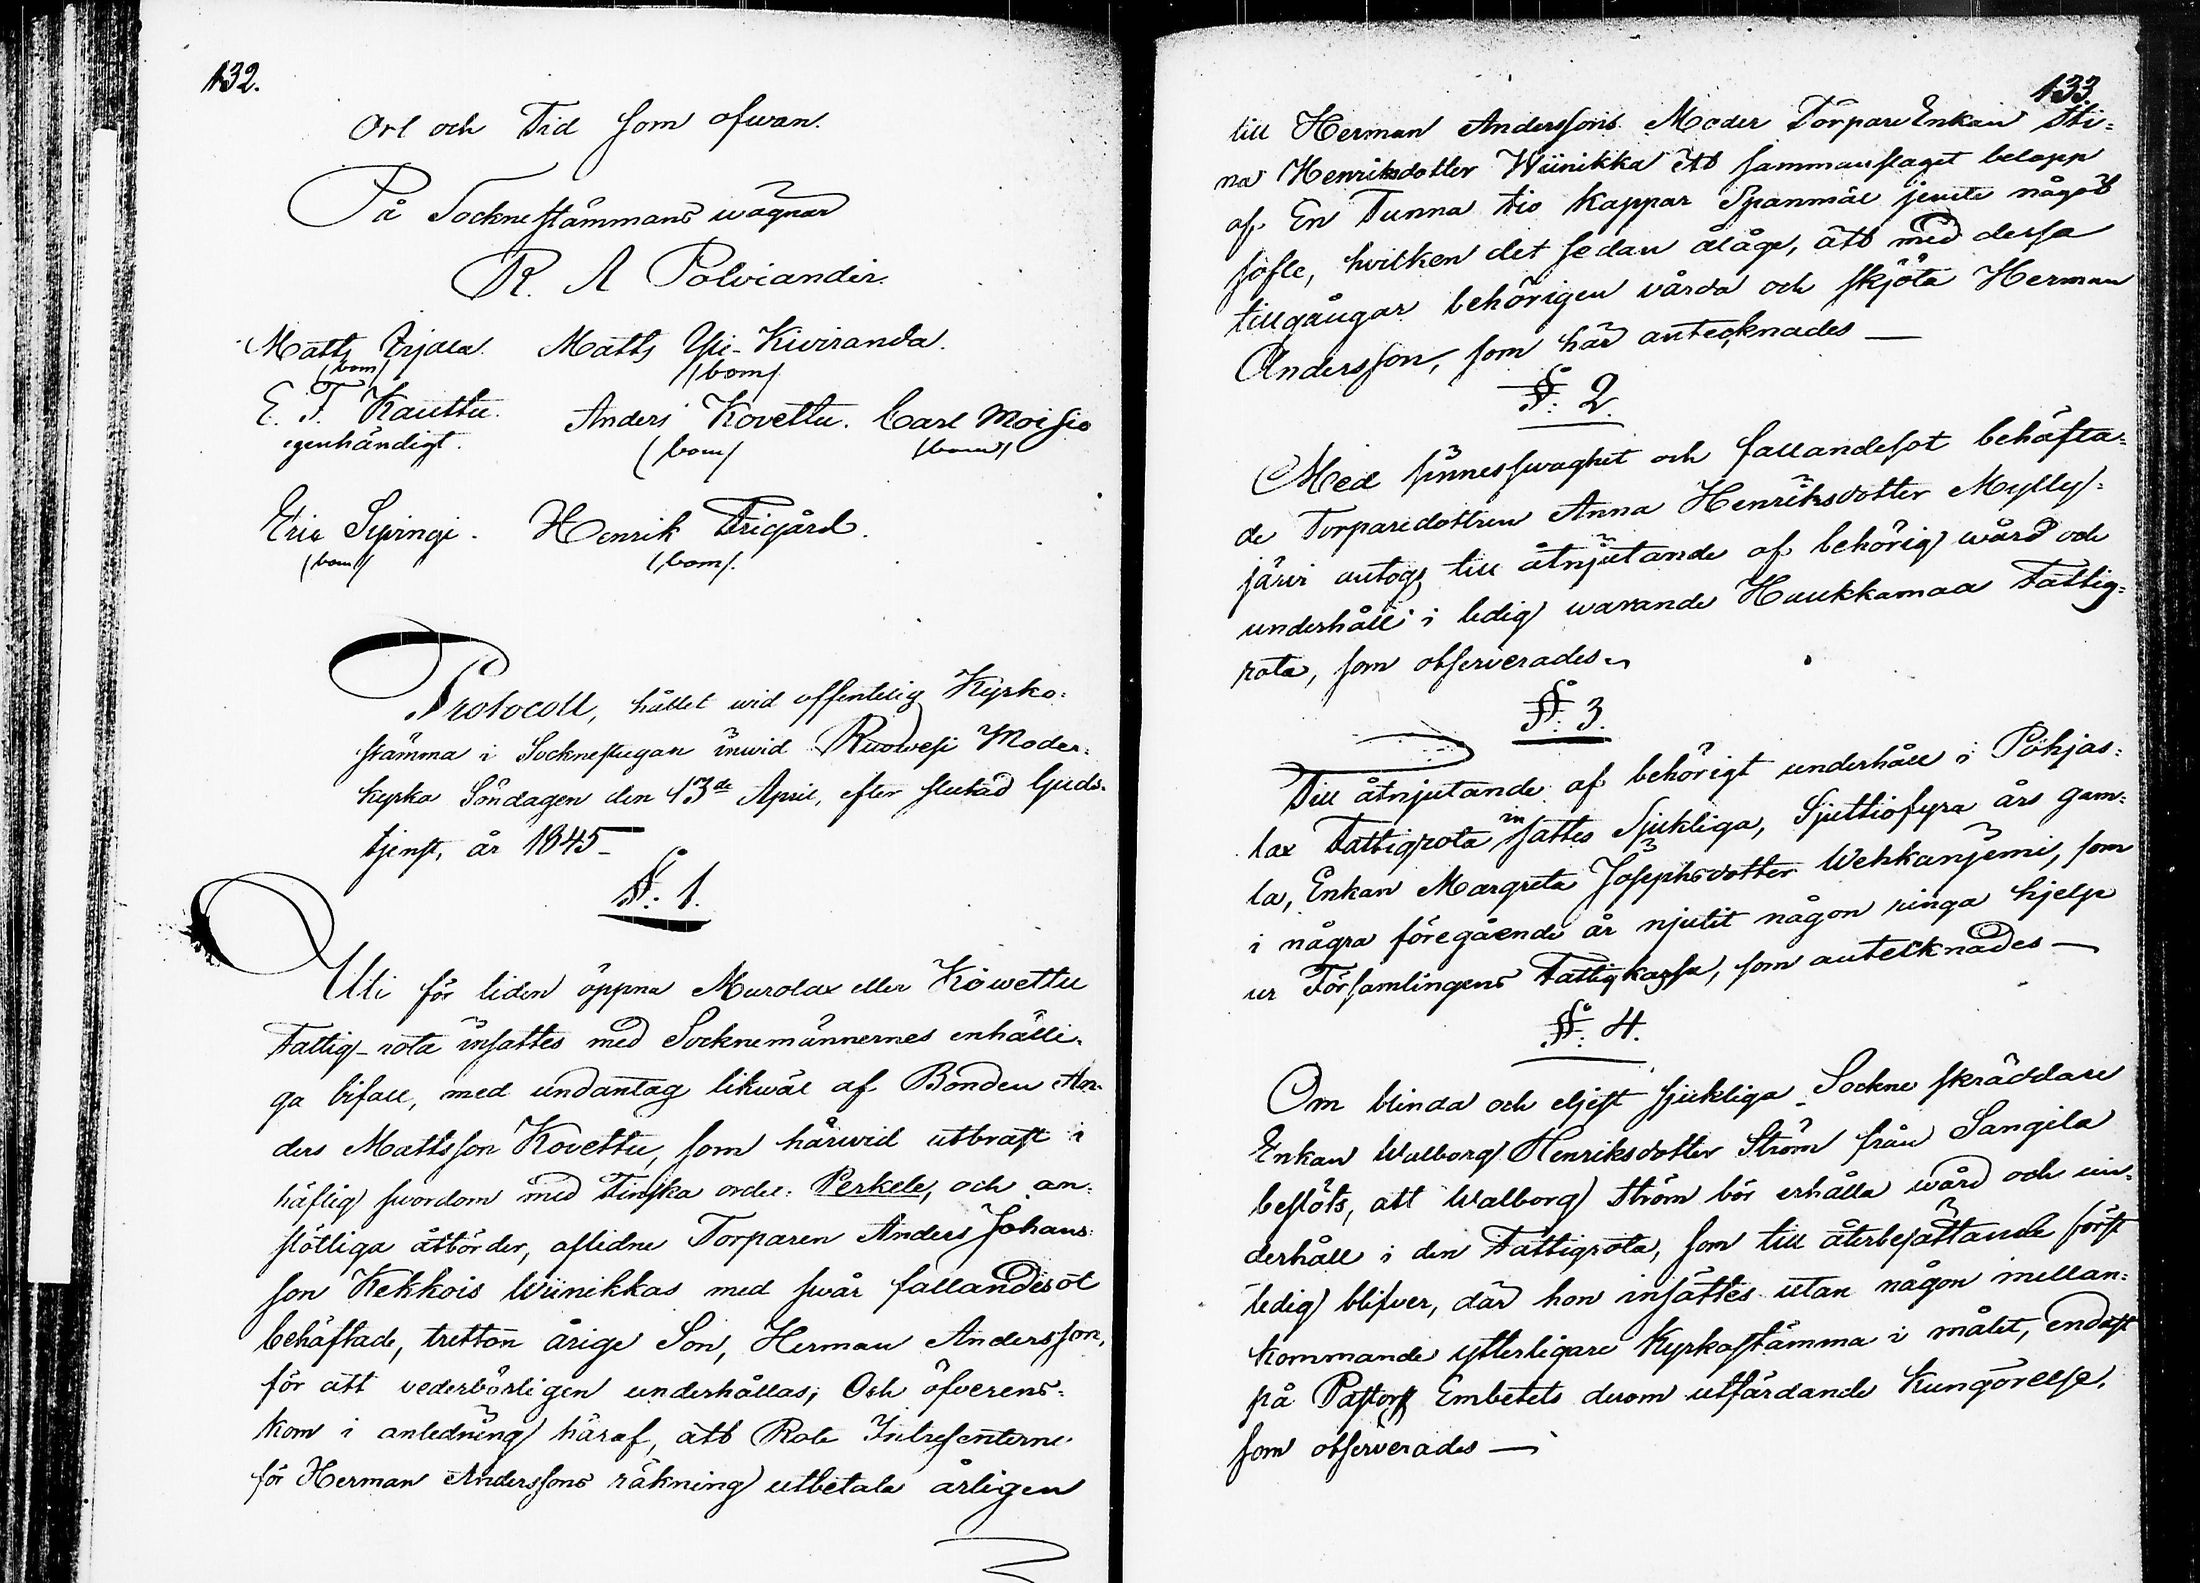 132.
Ort och Tid som ofwan.
På Sockneståmmans wägnar
R. A Polviander.
Matts Arjala. Matts Yli-Kiviranda.
(bom) (bom)
E. F. Kauttu. Anders Kovettu. Carl Moisio
egenhändigt. (bom) (bom)
Eric Sipingi. Henrik Frigård.
(bom) (bom).
Protocoll, hållet wid offentelig Kyrko-
stämma i Socknestugan inwid Ruowesi Moder-
kyrka Söndagen den 13de April, efter slutad Guds-
tjenst, år 1845 –
§: 1.
Uti för tiden öppna Murolax eller Kowettu
Fattig-rota insattes med Socknemännernes enhälli-
ga bifall, med undantag likwäl af Bonden An-
ders Mattsson Kovettu, som härwid utbrast i
häftig swordom med Finska ordet: Perkele, och an-
stötliga åtbörder, aflidne Torparen Anders Johans-
son Kekkois Wiinikkas med swår fallandesot
behäftade, tretton årige Son, Herman Andersson,
för att vederbörligen underhållas; Och öfverens-
kom i anledning häraf, att Rote Intressenterne
för Herman Anderssons räkning utbetala årligen
133.
till Herman Anderssons Moder TorpareEnkan Sti-
na Henriksdotter Wiinikka ett sammanslaget belopp
af En Tunna tio Kappar Spanmål jemte något
sofle, hvilken det sedan åläge, att med dessa
tillgångar behörigen vårda och skjöta Herman
Andersson, som här antecknades —
§: 2.
Med sinnesswaghet och fallandesot behäfta-
de Torparedottren Anna Henriksdotter Mylly-
järvi antogs till åtnjutande af behörig wård och
underhåll i ledig warande Huukkamaa Fattig-
rota, som observerades.
§: 3.
Till åtnjutande af behörigt underhåll i Pohjas-
lax Fattigrota insattes Sjukliga, Sjuttiofyra års gam-
la, Enkan Margreta Josephsdotter Wehkaniemi, som
i några föregående år njutit någon ringa hjelp
ur Församlingens Fattigkassa, som antecknades —
§: 4.
Om blinda och eljest sjukliga Sockne skräddare
Enkan Walborg Henriksdotter Ström från Sangila
beslöts, att Walborg Ström bör erhålla wård och un-
derhåll i den Fattigrota, som till återbesättande först
ledig blifver, där hon insättes utan någon mellan-
kommande ytterligare Kyrkostämma i målet, endast
på Pastors Embetets derom utfärdande Kungörelse,
som observerades —